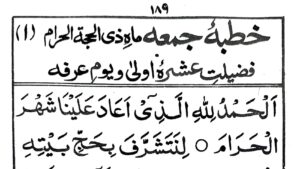 ۱۸۹
خطبۂ جمعہ ماہِ ذی الحجۃ الحرام (۱)
فضیلتِ عشرۂ اولیٰ و یومِ عرفہ
اَلْحَمْدُ لِلّٰهِ الَّذِیْ اَعَادَ عَلَیْنَا شَهْرَ
الْحَرَامِ ○ لِنَتَشَرَّفَ بِحَجِّ بَیْتِهِ